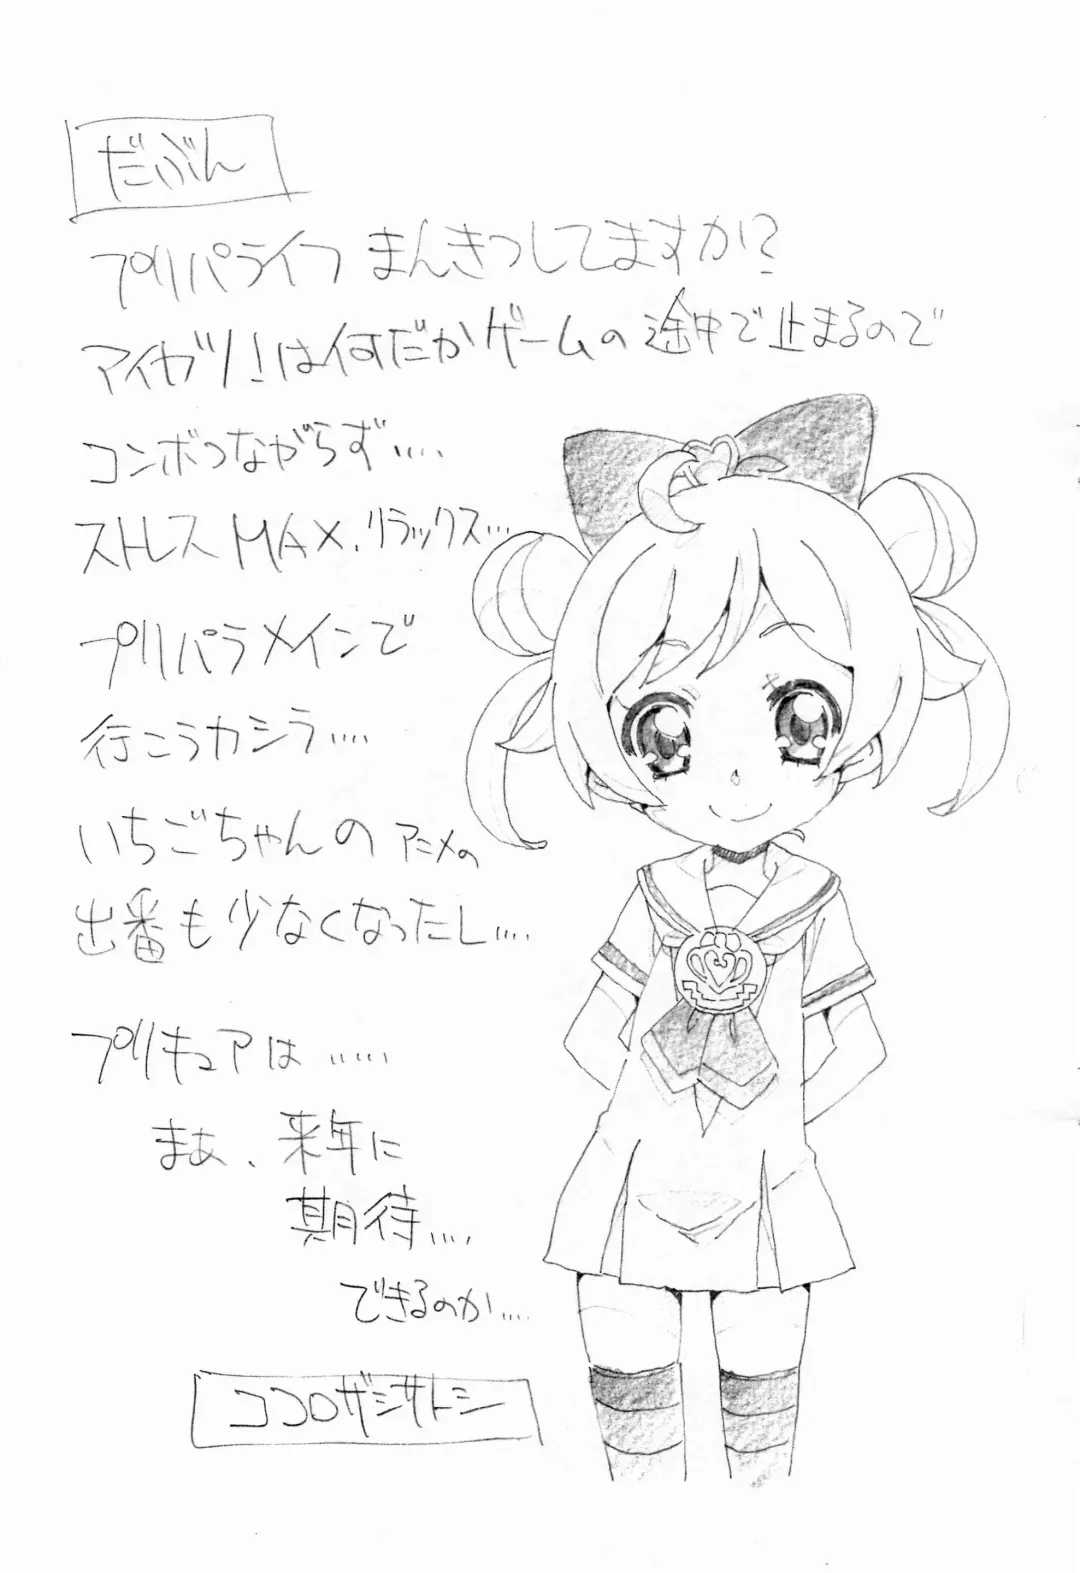 だぶん
プリパライフ まんきつしてますか?
アイカツ!は何だかゲームの途中で止まるので
コンボつながらず....
ストレスMAX.リラックス...
プリパラメインで
行こうカシラ....
いちごちゃんの アニメの
出番も少なくなったし....
プリキュアは......
まぁ、来年に
期待....
できるのか....
ココロザシサトシ